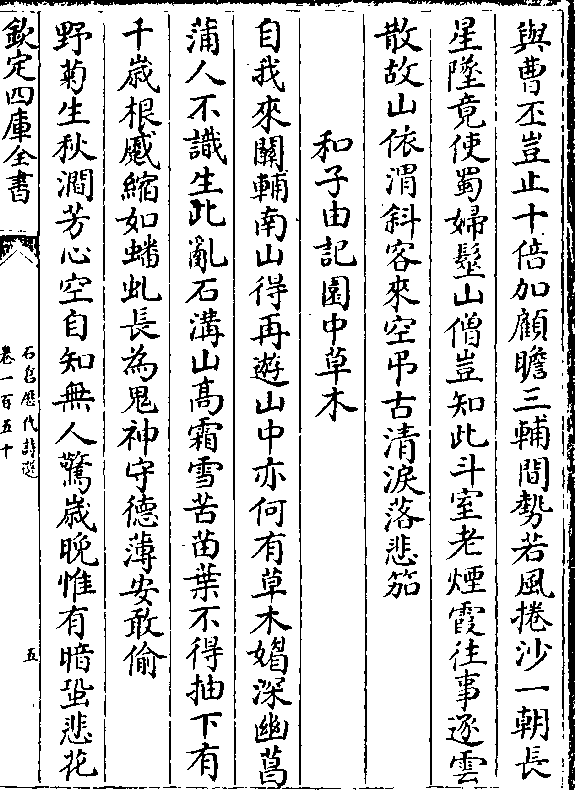 與曹丕豈止十倍加顧瞻三輔間勢若風捲沙一朝長
星墜竟使蜀婦髽山僧豈知此斗室老煙霞往事逐雲
散故山依渭斜客來空弔古清淚落悲笳
和子由記園中草木
自我來關輔南山得再遊山中亦何有草木媚深幽菖
蒲人不識生此亂石溝山髙霜雪苦苗葉不得抽下有
千嵗根蹙縮如蟠虬長為鬼神守德薄安敢偷
野菊生秋澗芳心空自知無人驚嵗晚惟有暗蛩悲花
欽定四庫全書
石倉歴代詩選
卷一百五十
五